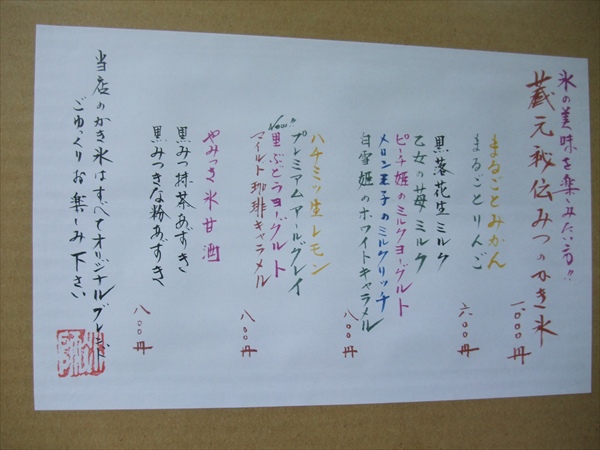 氷の美味を楽しみたい方!!
蔵元秘伝みつのかき氷
一、〇〇〇円
まるごとみかん
まるごとりんご
六〇〇円
黒落花生ミルク
乙女の苺ミルク
ピーチ姫のミルクヨーグルト
メロン王子のミルクリッチ
白雪姫のホワイトキャラメル
八〇〇円
ハチミツ生レモン
プレミアムアールグレイ
New!!
黒ぶどうヨーグルト
マイルド珈琲キャラメル
八〇〇円
やみつき氷甘酒
黒みつ抹茶あずき
黒みつきな粉あずき
八〇〇円
当店のかき氷はすべてオリジナルブレンド
ごゆっくりお楽しみ下さい